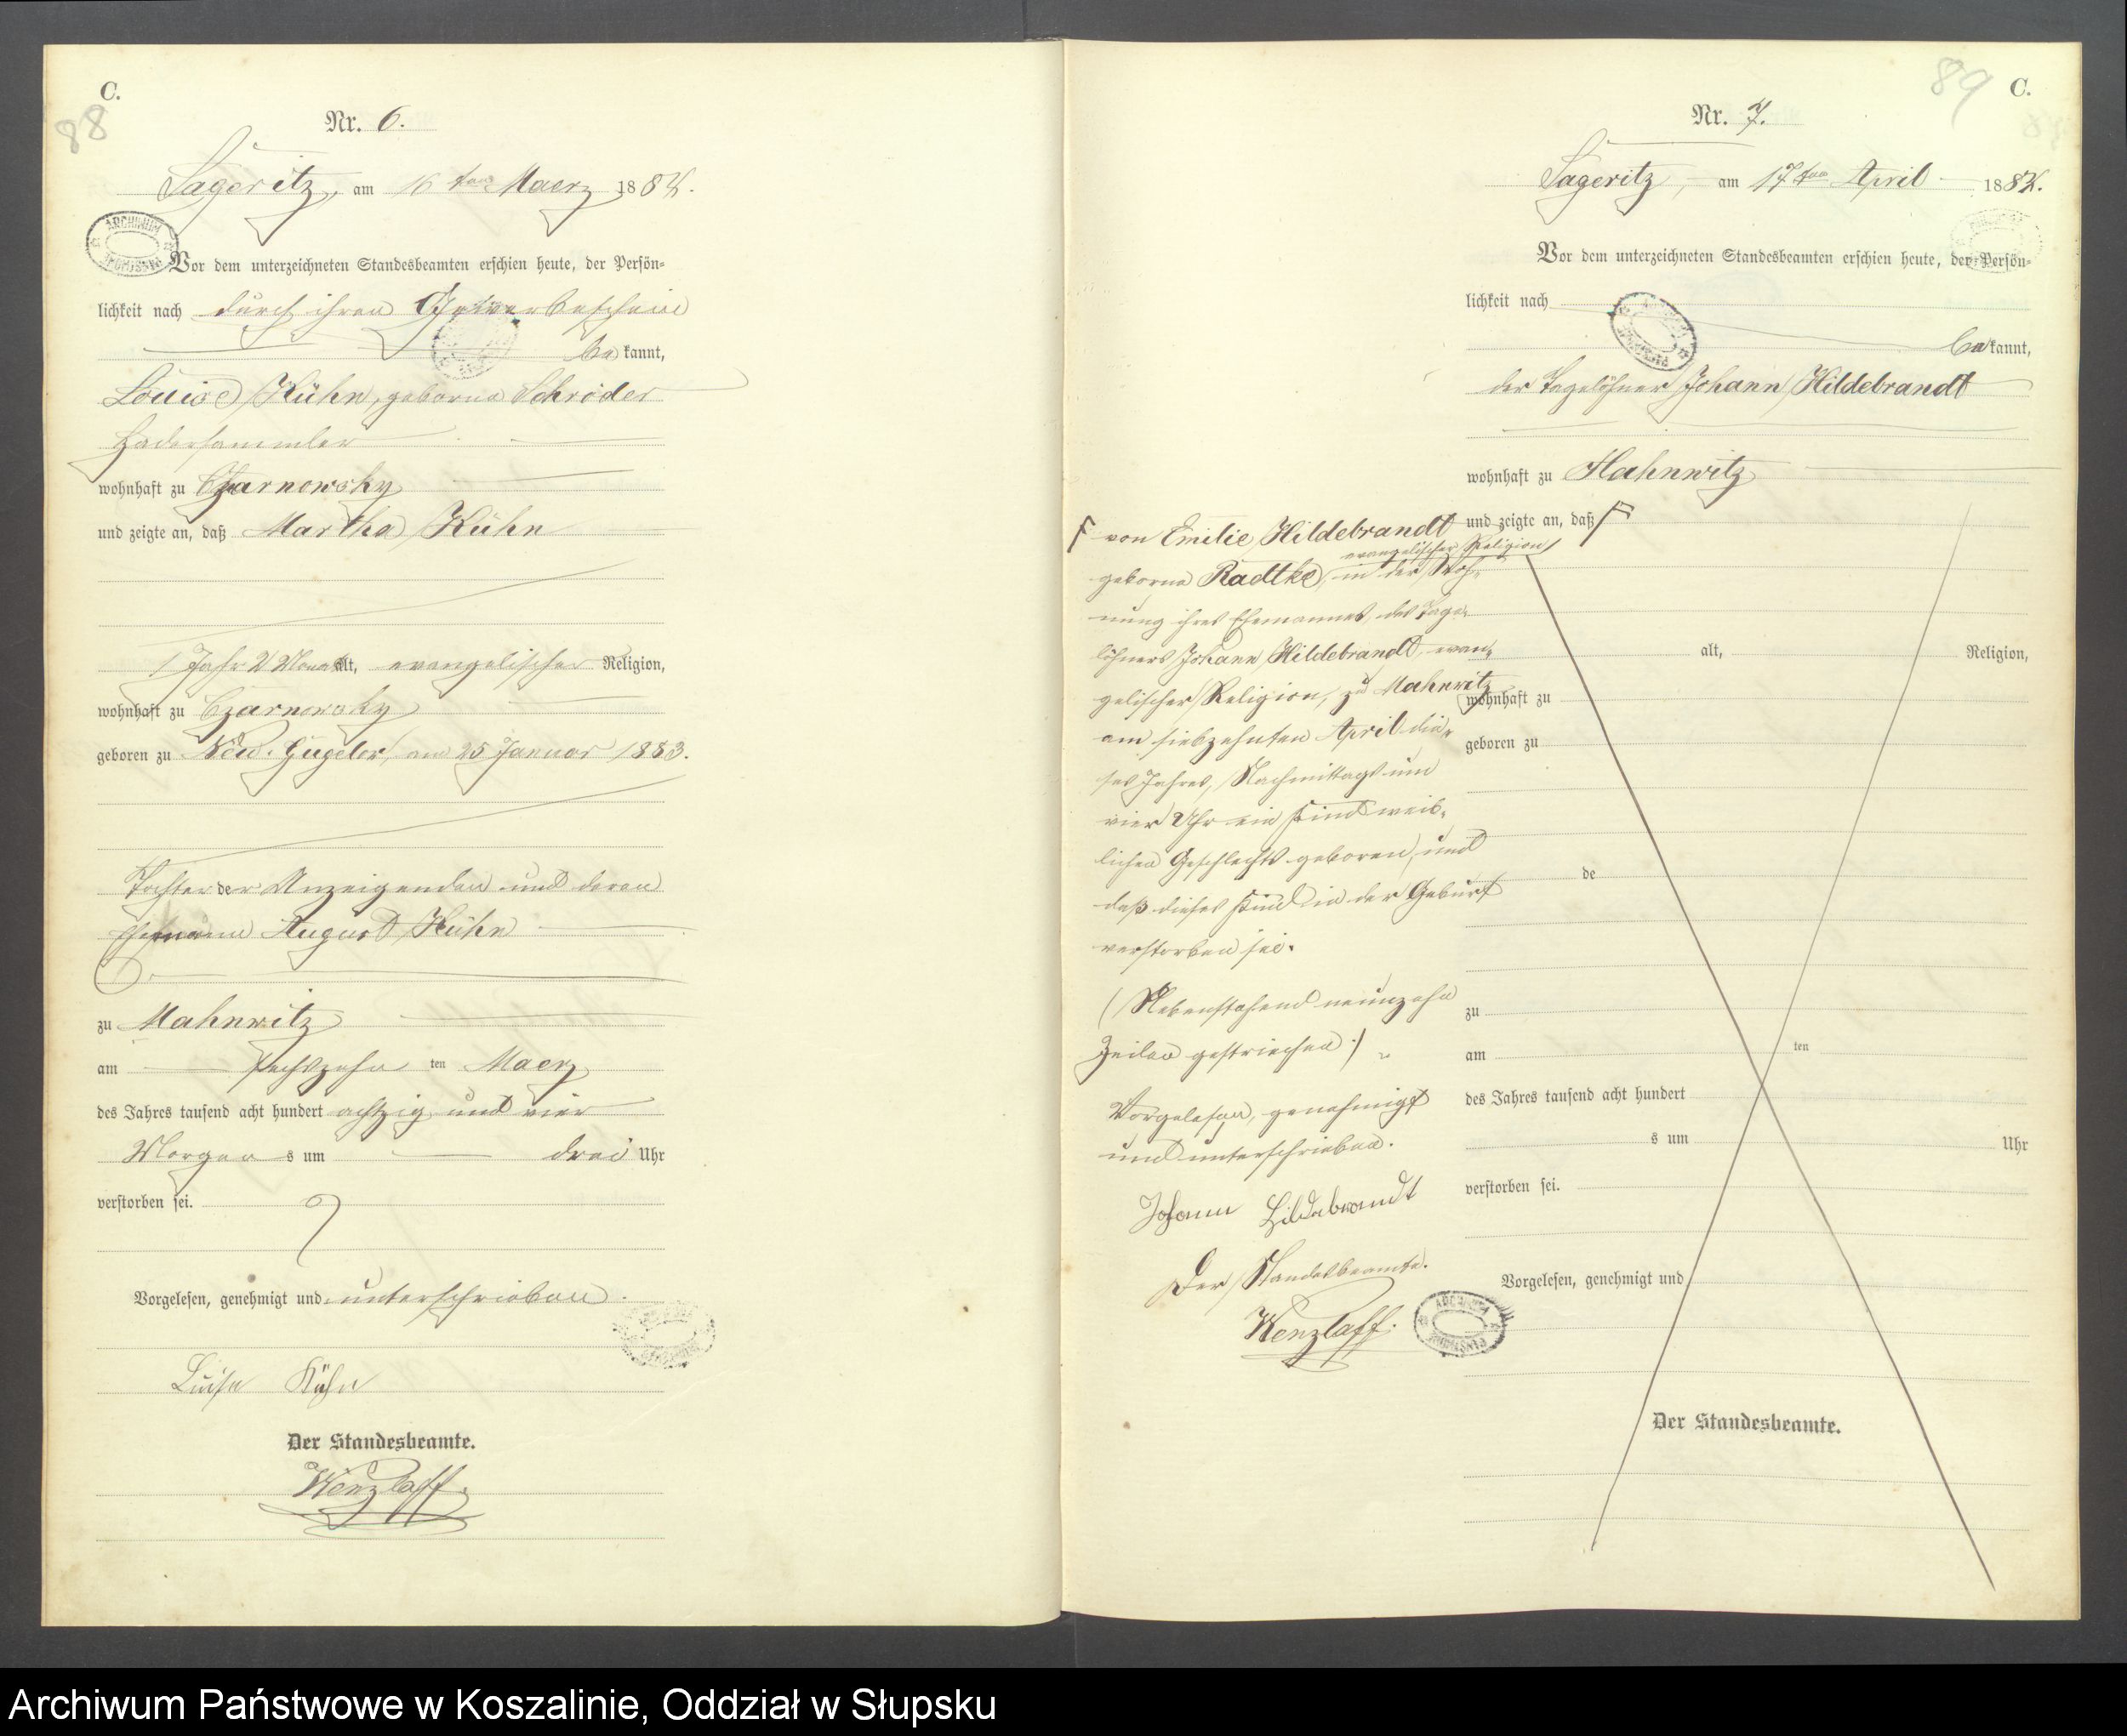 C.
88
Nr. 6.
Sageritz, am 16ten Maerz 1884.
Vor dem unterzeichneten Standesbeamten erschien heute, der Persön=
lichkeit nach durch ihren Gewerbeschein
bekannt,
Louise Kühn, geborne Schröder
Hadersammler
wohnhaft zu Czarnowsky
und zeigte an, daß Martha Kühn
1 Jahr 2 Monat alt, evangelischer Religion,
wohnhaft zu Czarnowsky
geboren zu Neu-Gugelow, am 25 Januar 1883.
Tochter der Anzeigenden und deren
Ehemann August Kühn
zu Mahnwitz
am sechszehn ten Maerz
des Jahres tausend acht hundert achtzig und vier
Morgens um drei Uhr
verstorben sei.
Vorgelesen, genehmigt und unterschrieben.
Luise Kühn
Der Standesbeamte.
Wenzlaff.
89 C.
Nr. 7.
Sageritz, am 17ten April 1884.
Vor dem unterzeichneten Standesbeamten erschien heute, der Persön=
lichkeit nach
bekannt,
der Tagelöhner Johann Hildebrandt
wohnhaft zu Mahnwitz
und zeigte an, daß
von Emilie Hildebrandt
evangelischer Religion
geborne Radtke, in der Woh-
nung ihres Ehemannes, des Tage-
löhners Johann Hildebrandt, evan-
gelischer Religion, zu Mahnwitz
am siebzehnten April die-
ses Jahres, Nachmittags um
vier Uhr ein Kind weib-
lichen Geschlechts geboren, und
daß dieses Kind in der Geburt
verstorben sei.
(Nebenstehend neunzehn
Zeilen gestrichen.)
Vorgelesen, genehmigt
und unterschrieben.
Johann Hildebrandt
Der Standesbeamte.
Wenzlaff.
alt, Religion,
wohnhaft zu
geboren zu
de
zu
am ten
des Jahres tausend acht hundert
s um Uhr
verstorben sei.
Vorgelesen, genehmigt und
Der Standesbeamte.
Archiwum Państwowe w Koszalinie, Oddział w Słupsku